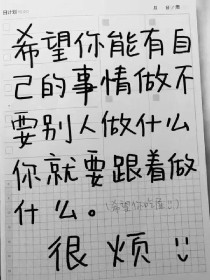 日计划
月 日/周
希望你能有自
己的事情做不
要别人做什么
你就要跟着做
什么。(希望你的
很烦